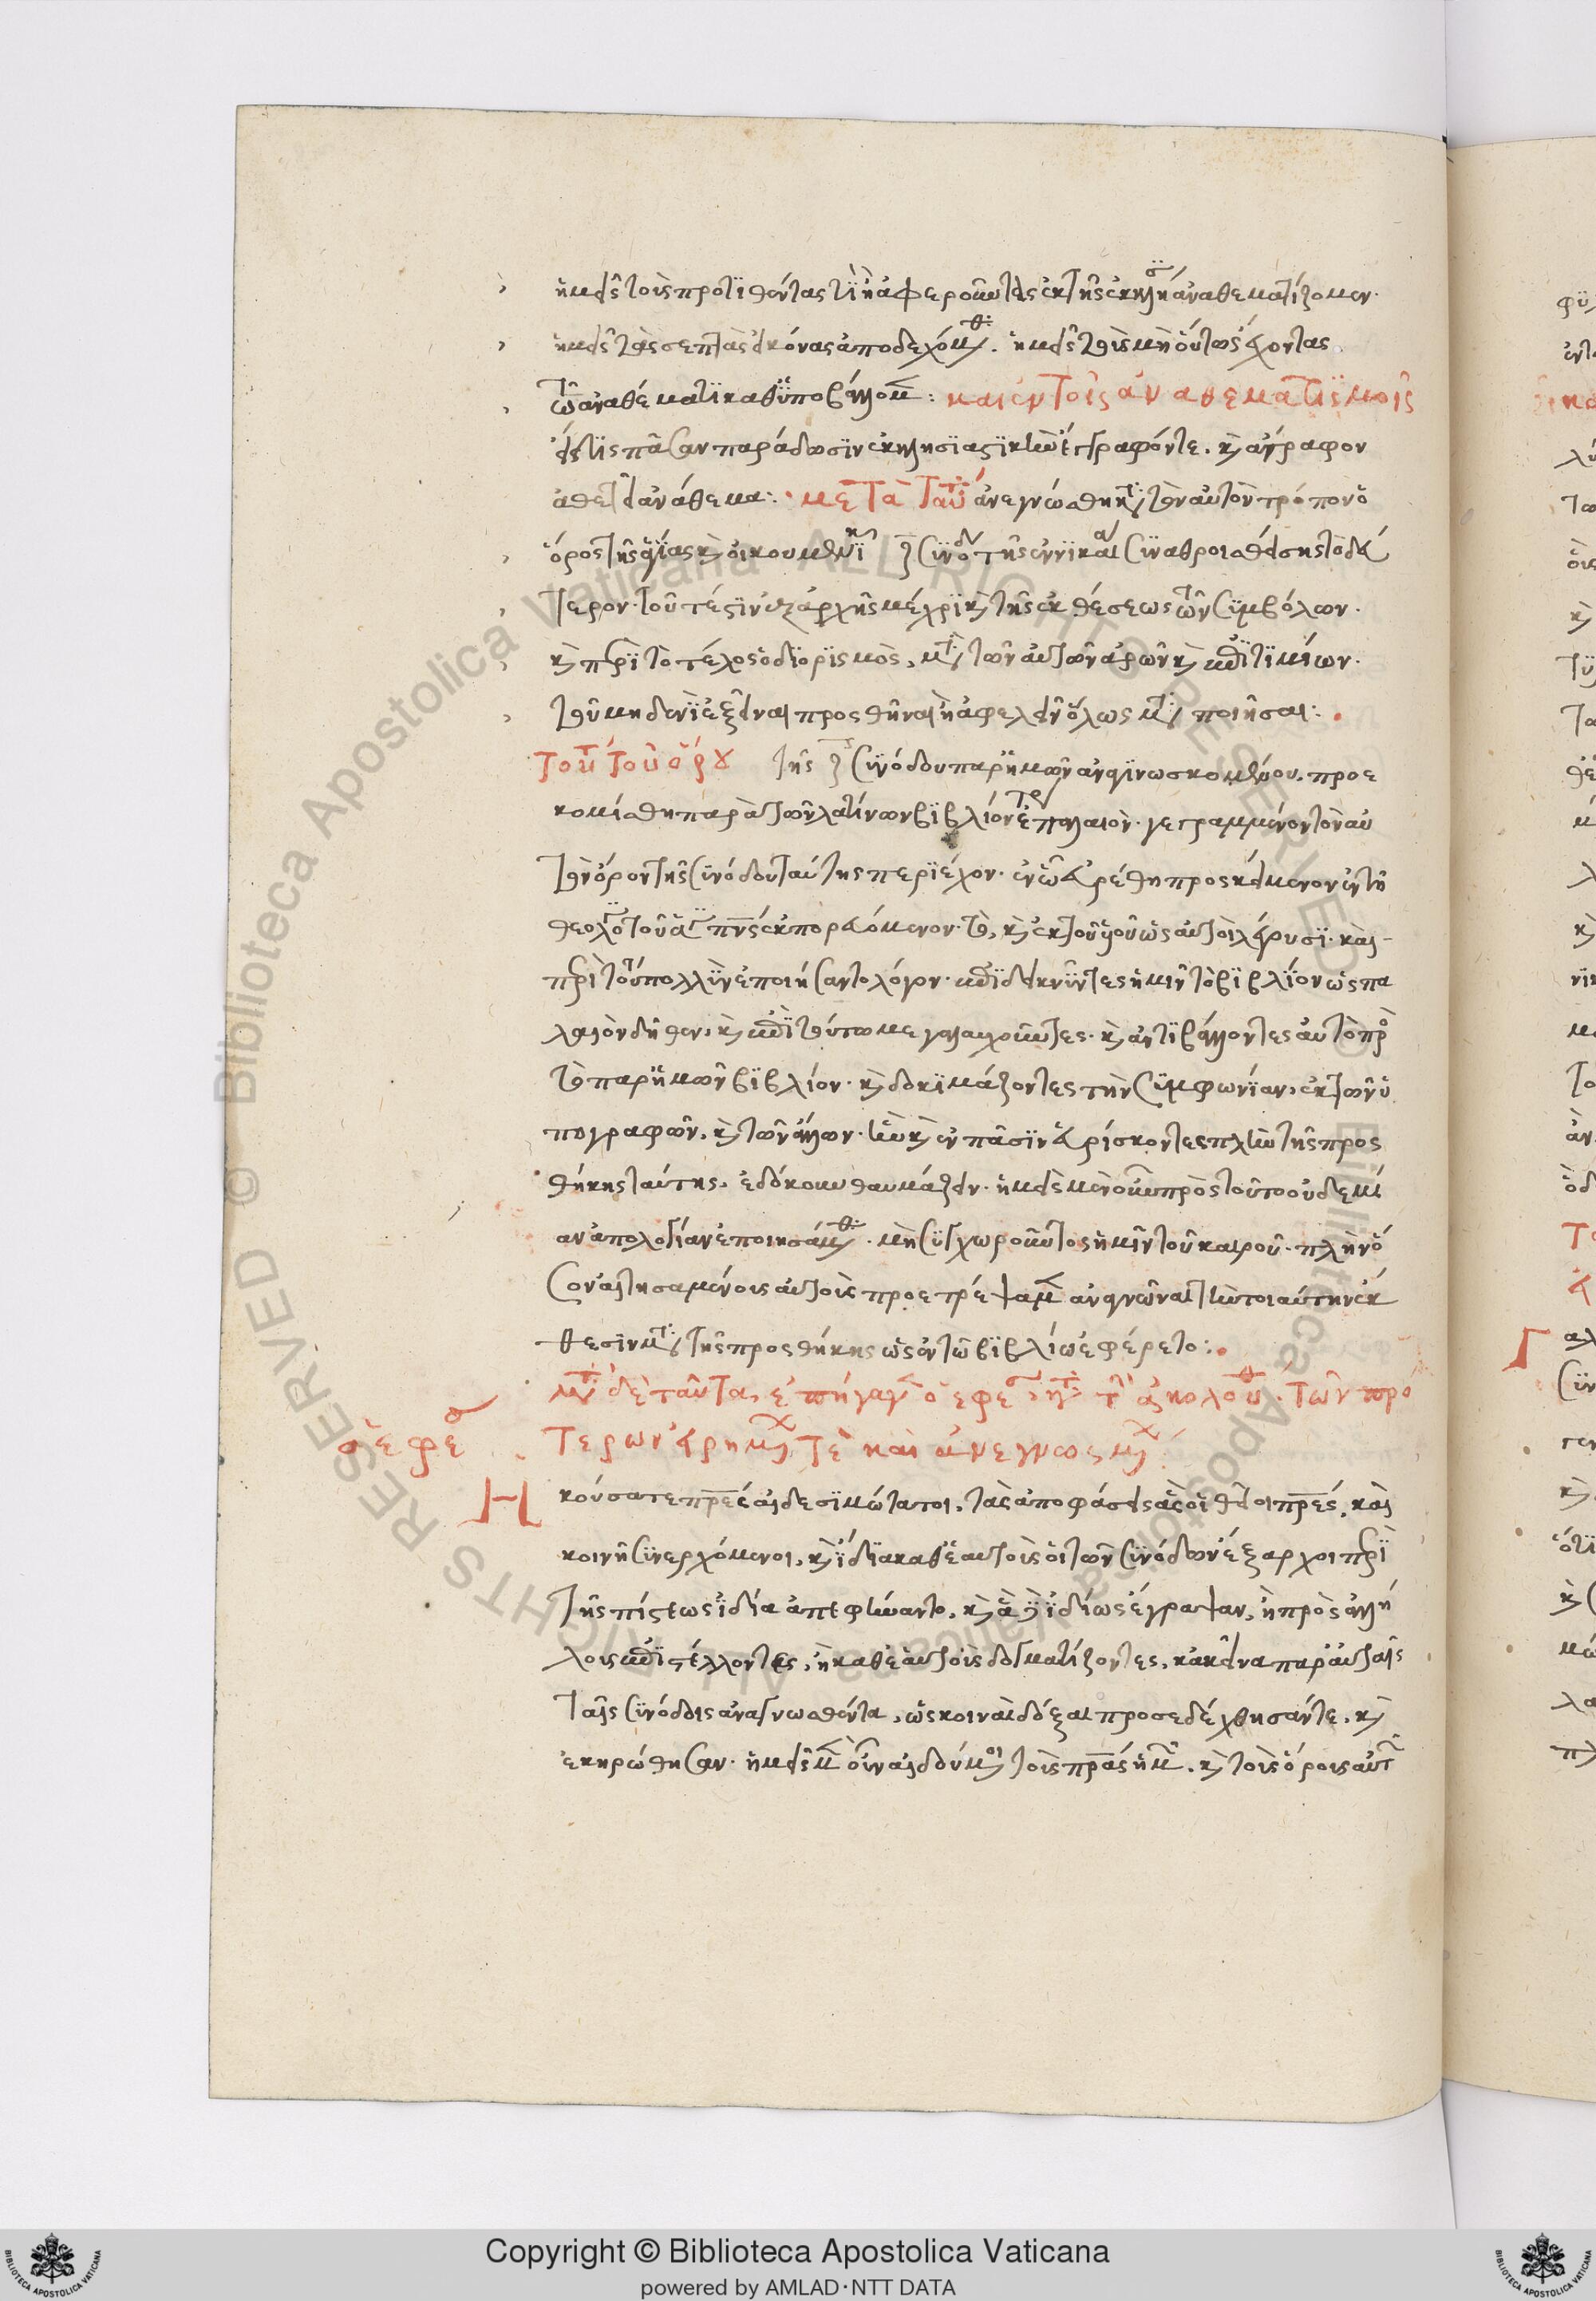 ἡμεῖς τοὺς προστιθέντας τὶ ἢ ἀφεροῦντας ἐκ τῆς ἐκκλησίας ἀναθεματίζομεν.
ἡμεῖς τὰς σεπτὰς εἰκόνας ἀποδεχόμεθα. ἡμεῖς τοὺς μὴ οὕτως ἔχοντας
τῶ ἀναθέματι καθυποβάλλομεν: καὶ ἐν τοῖς ἀναθεματισμοῖς
εἴ τις πᾶσαν παράδοσιν ἐκκλησιαστικὴν ἔγγραφόν τε. καὶ ἄγραφον
ἀθετεῖ ἀνάθεμα:. μετὰ ταῦτα ἀνεγνώσθη κατὰ τὸν αὐτὸν τρόπον ὁ
ὅρος τῆς ἁγίας καὶ οἰκουμενικῆς ζ συνόδου τῆς ἐν νικαία συναθροισθείσης τὸ δεύ
τερον. τουτέστιν ἐξ ἀρχῆς μέχρι καὶ τῆς ἐκθέσεως τῶν συμβόλων.
καὶ περὶ τὸ τέλος ὁ διορισμὸς, μετὰ τῶν αὐτῶν ἀρῶν καὶ ἐπιτιμίων.
τοῦ μηδενὶ ἐξεῖναι προσθῆναι ἢ ἀφελεῖν ὅλως τι ποιῆσαι:.
τούτου τοῦ ὅρου τῆς ζ συνόδου παρ' ἡμῶν ἀναγινωσκομένου, προε
κομίσθη παρὰ τῶν λατίνων βιβλίον ἕτερον παλαιὸν. γεγραμμένον τὸν αὐ
τὸν ὅρον τῆς συνόδου ταύτης περιέχον. ἐν ὧ εὑρέθη προσκείμενον ἐν τῆ
θεολογία τοῦ ἁγίου πνς ἐκπορευόμενον. τὸ, καὶ ἐκ τοῦ υἱοῦ ὡς αὐτοὶ λέγουσι. καὶ
περὶ τούτου πολλὺν ἐποιήσαντο λόγον. ἐπιδεικνῦντες ἡμῖν τὸ βιβλίον ὡς πα
λαιὸν δῆθεν, καὶ ἐπὶ τούτω μεγαλαυχοῦντες. καὶ ἀντιβάλλοντες αὐτὸ πρὸς
τὸ παρ' ἡμῶν βιβλίον. καὶ δοκιμάζοντες τὴν συμφωνίαν, ἐκ τῶν ὑ
πογραφῶν, καὶ τῶν ἄλλων. ἣν καὶ ἐν πᾶσιν εὑρίσκοντες πλὴν τῆς προσ
θήκης ταύτης, ἐδόκουν θαυμάζειν. ἡμεῖς μὲν οὖν πρὸς τοῦτο οὐδεμί
αν ἀπολογίαν ἐποιησάμεθα. μὴ συγχωροῦντος ἡμῖν τοῦ καιροῦ. πλὴν ὅ
σον αἰτησαμένοις αὐτοῖς προετρέψαμεν ἀναγνῶναι τὴν τοιαύτην ἔκ
θεσιν μετὰ τῆς προσθήκης ὡς ἐν τῶ βιβλίω ἐφέρετο:.
μετὰ δὲ ταῦτα, ἐπήγαγεν ὁ ἐφέσου, τῶν προ
ὁ ἐφέσου
τέρων εἰρημένων τὲ καὶ ἀνεγνωσμένων
Ἠκούσατε πρες αἰδεσιμώτατοι, τὰς ἀποφάσεις ἃς οἱ θεῖοι πρες, καὶ
κοινῆ συνερχόμενοι, καὶ ἰδία καθ' ἑαυτοὺς οἱ τῶν συνόδων ἔξαρχοι περὶ
τῆς πίστεως ἰδία ἀπεφήναντο, καὶ ἃ ἰδίως ἔγραψαν, ἢ πρὸς ἀλλή
λους ἐπιστέλλοντες, ἢ καθ' ἑαυτοὺς δογματίζοντες, κἀκεῖνα παρ' αὐταῖς
ταῖς συνόδοις ἀναγνωσθέντα, ὡς κοιναὶ δόξαι προσεδέχθησάν τε, καὶ
ἐκυρώθησαν. ἡμεῖς μὲν οὖν αἰδούμενοι τοὺς πρας ἡμῶν. καὶ τοὺς ὅρους αὐτῶν